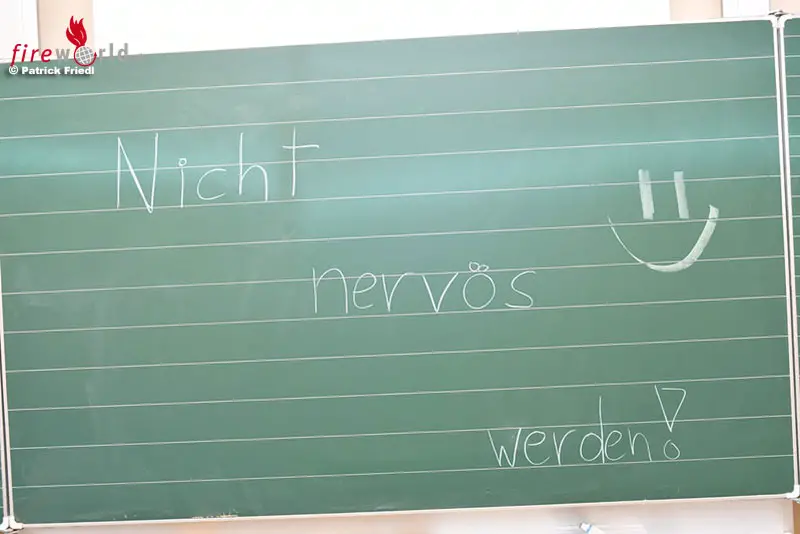 fireworld
© Patrick Friedl
Nicht
nervös
werden!